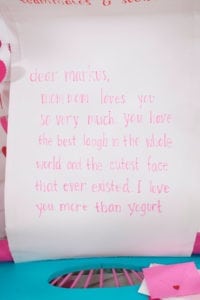 dear markus,
mommom loves you
so very much. you have
the best laugh in the whole
world and the cutest face
that ever existed. I love
you more than yogurt